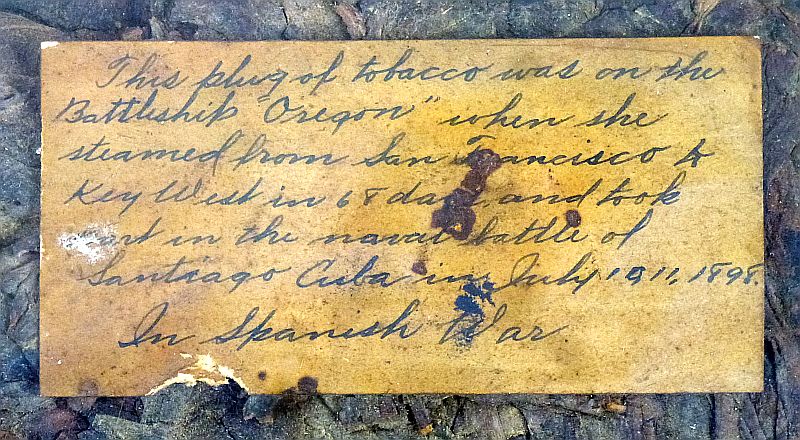 This plug of tobacco was on the
Battleship "Oregon" when she
steamed from San Francisco to
Key West in 68 days and took
part in the naval battle of
Santiago Cuba in July 10, 11, 1898.
In Spanish War